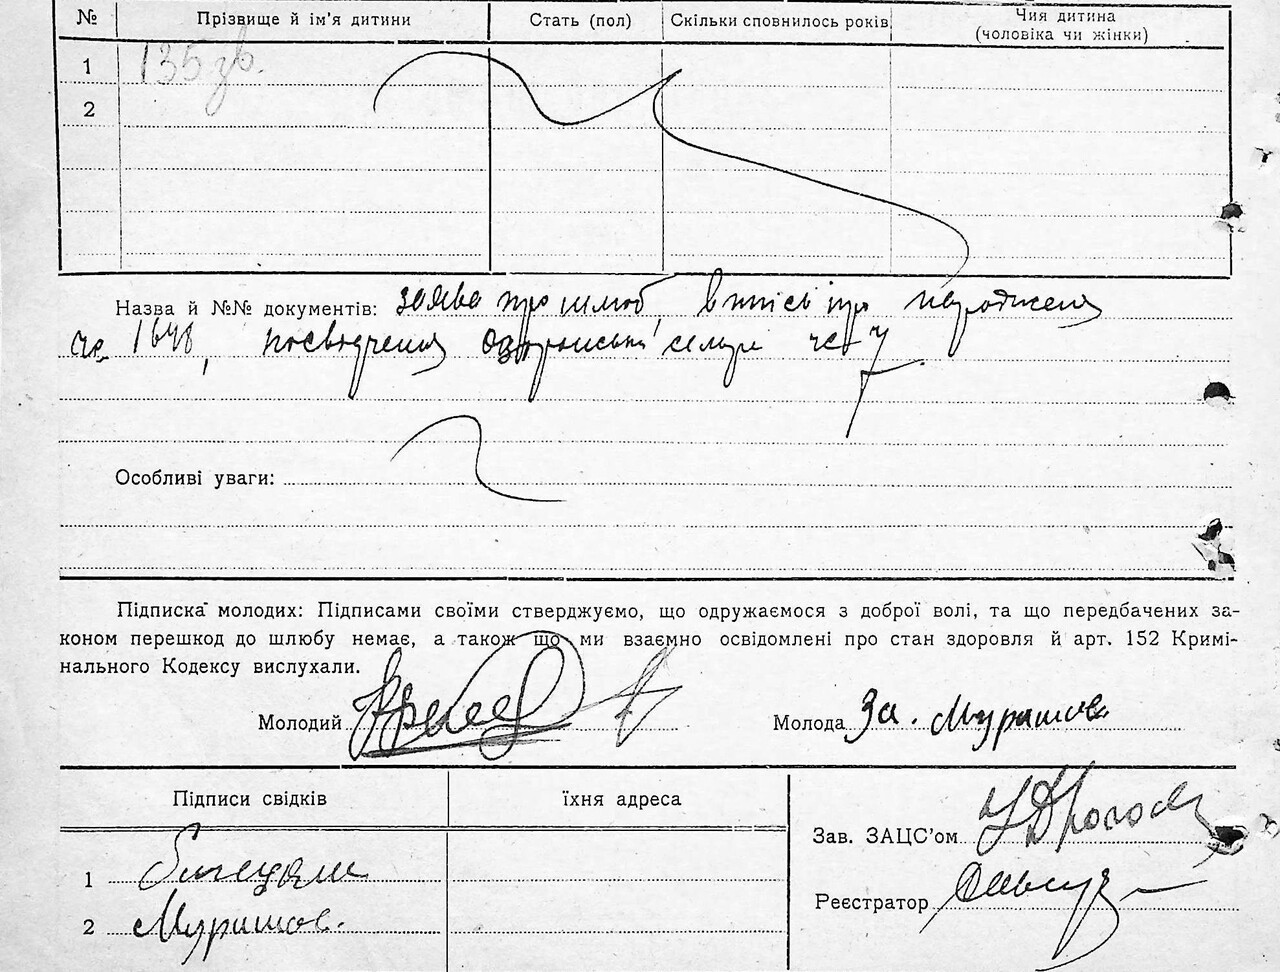 № Прізвище й ім'я дитини Стать (пол) Скільки сповнилось років Чия дитина
(чоловіка чи жінки)
1 135 зв.
2
Назва й №№ документів: заява про шлюб, впись про народження
1648, посвідчення сельради
Особливі уваги:
Підписка молодих: Підписами своїми стверджуємо, що одружаємося з доброї волі, та що передбачених за-
коном перешкод до шлюбу немає, а також що ми взаємно освідомлені про стан здоровля й арт. 152 Кримі-
нального Кодексу вислухали.
Молодий Молода За. Муратов
Підписи свідків їхня адреса
Зав. ЗАЦС'ом
1
Реєстратор
2 Муратов.